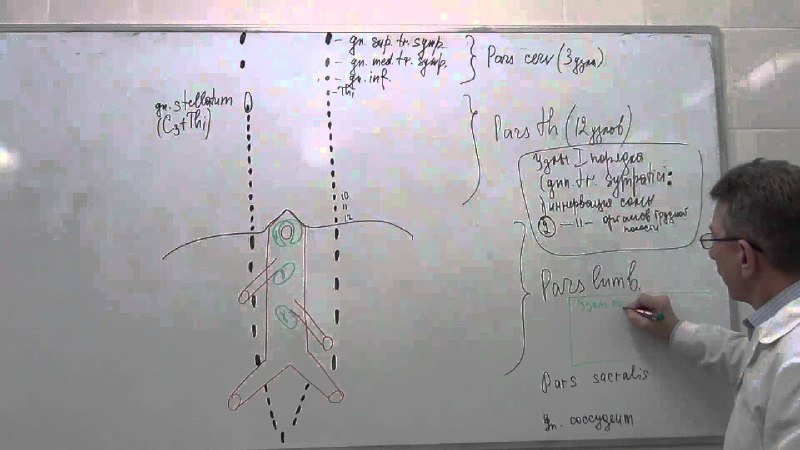 gn. sup. tr. symp.
gn. med. tr. symp.
gn. inf
Th₁
Pars cerv (3 узла)
gn. stellatum
(C₃+Th₁)
Pars th (12 узлов)
Узлы I порядка
(gnn. tr. sympatici:
1) иннервация сомы
2) —||— органов грудной
полости
10
11
12
Pars lumb.
Узлы
Pars sacralis
gn. coccygeum